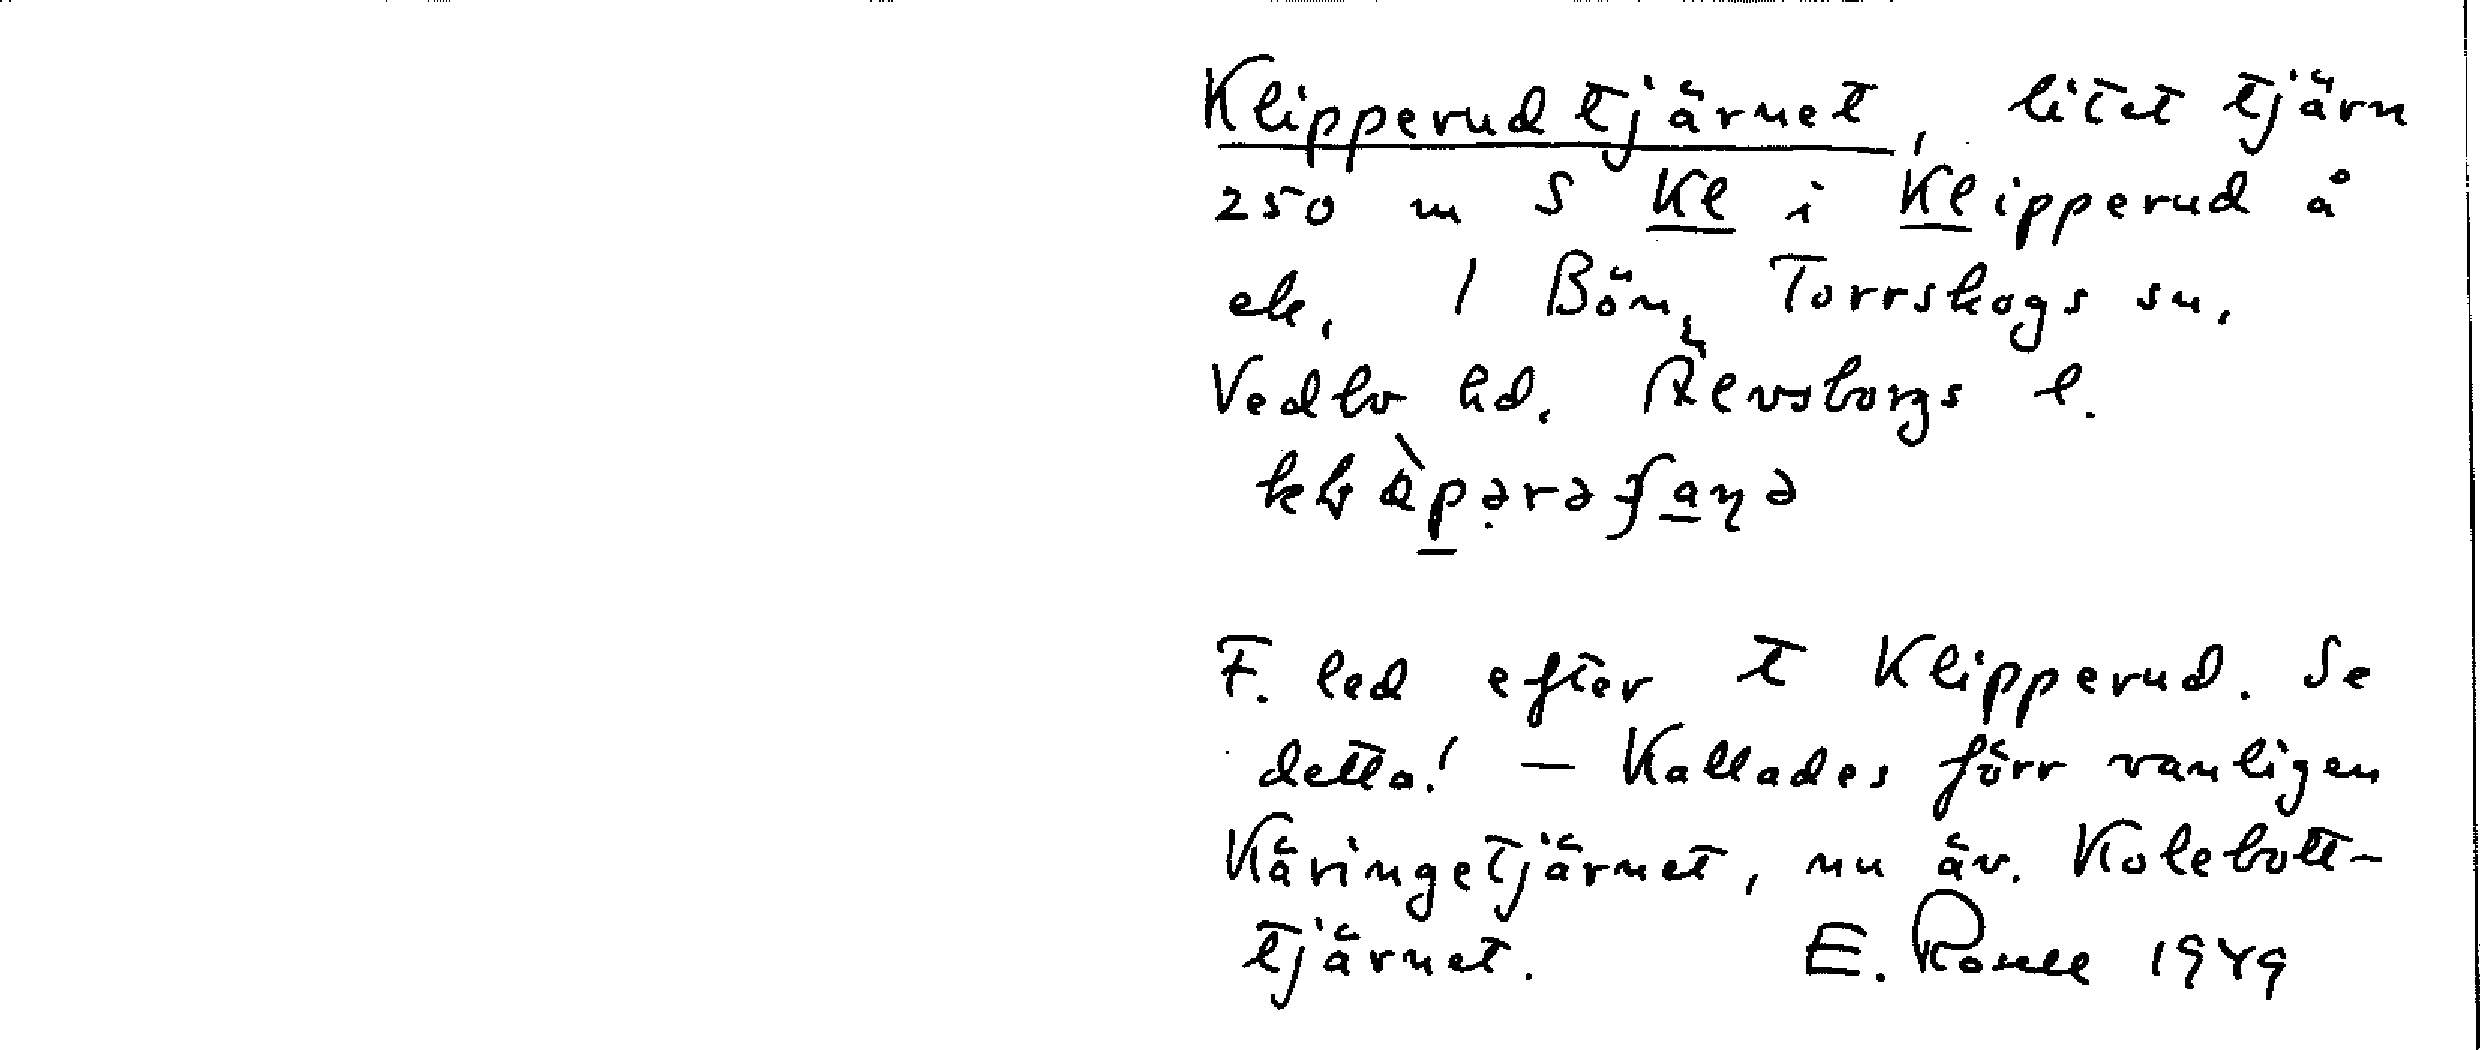 Klipperudtjärnet, litet tjärn
250 m S Kl i Klipperud å
ek. 1 Bön, Torrskogs sn,
Vedbo hd. Älvsborgs l.
F. led efter t Klipperud. Se
detta! — Kallades förr vanligen
Käringetjärnet, nu äv. Kolebott-
tjärnet. E. Rosell 1949